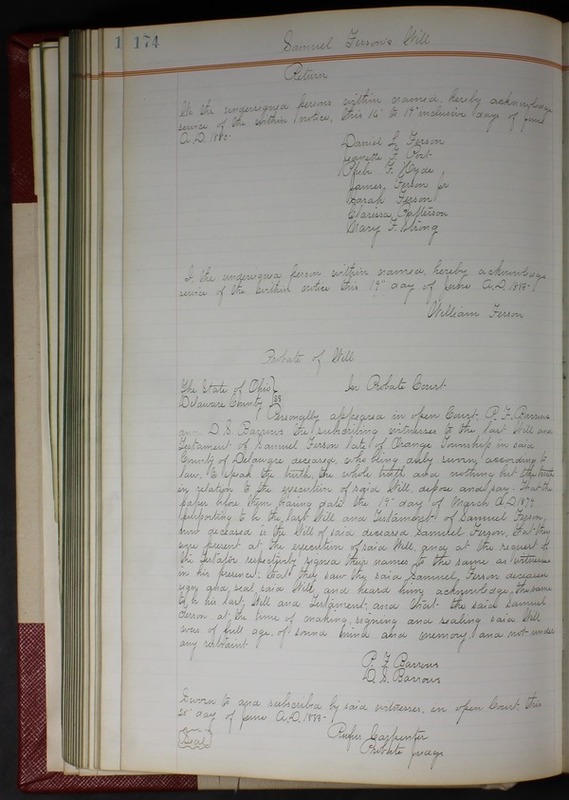 1 174 Samuel Ferson's Will
Return
We the undersigned persons within named, hereby acknowledge
service of the within notice, this 16" to 19" inclusive days of June
A.D. 188
Daniel L. Ferson
Janette F. Post
Pheb F. Hyde
James Ferson Jr
Sarah Ferson
Clarissa Patterson
Mary F. Strong
I, the undersigned person within named, hereby acknowledge
service of the within notice this 19" day of June A.D. 188
William Ferson
Probate of Will
The State of Ohio
Delaware County } SS In Probate Court
Personally appeared in open Court, P. F. Barrows
and D. S. Barrows the subscribing witnesses to the last Will and
Testament of Samuel Ferson late of Orange Township in said
County of Delaware deceased, who being duly sworn, according to
law, to speak the truth, the whole truth and nothing but the truth
in relation to the execution of said Will, depose and say: that the
paper before them, bearing date the 19" day of March A.D. 1879
purporting to be the last Will and Testament of Samuel Ferson,
now deceased is the Will of said deceased Samuel Ferson, that they
were present at the execution of said Will, and at the request of
the Testator respectively signed their names to the same as witnesses
in his presence: that they saw the said Samuel Ferson deceased
sign and seal said Will, and heard him acknowledge the same
to be his last Will and Testament; and that the said Samuel
Ferson at the time of making, signing and sealing said Will
was of full age, of sound mind and memory, and not under
any restraint.
P. F. Barrows
D. S. Barrows
Sworn to and subscribed by said witnesses, in open Court this
20" day of June A.D. 188
Seal Rufus Carpenter
Probate Judge